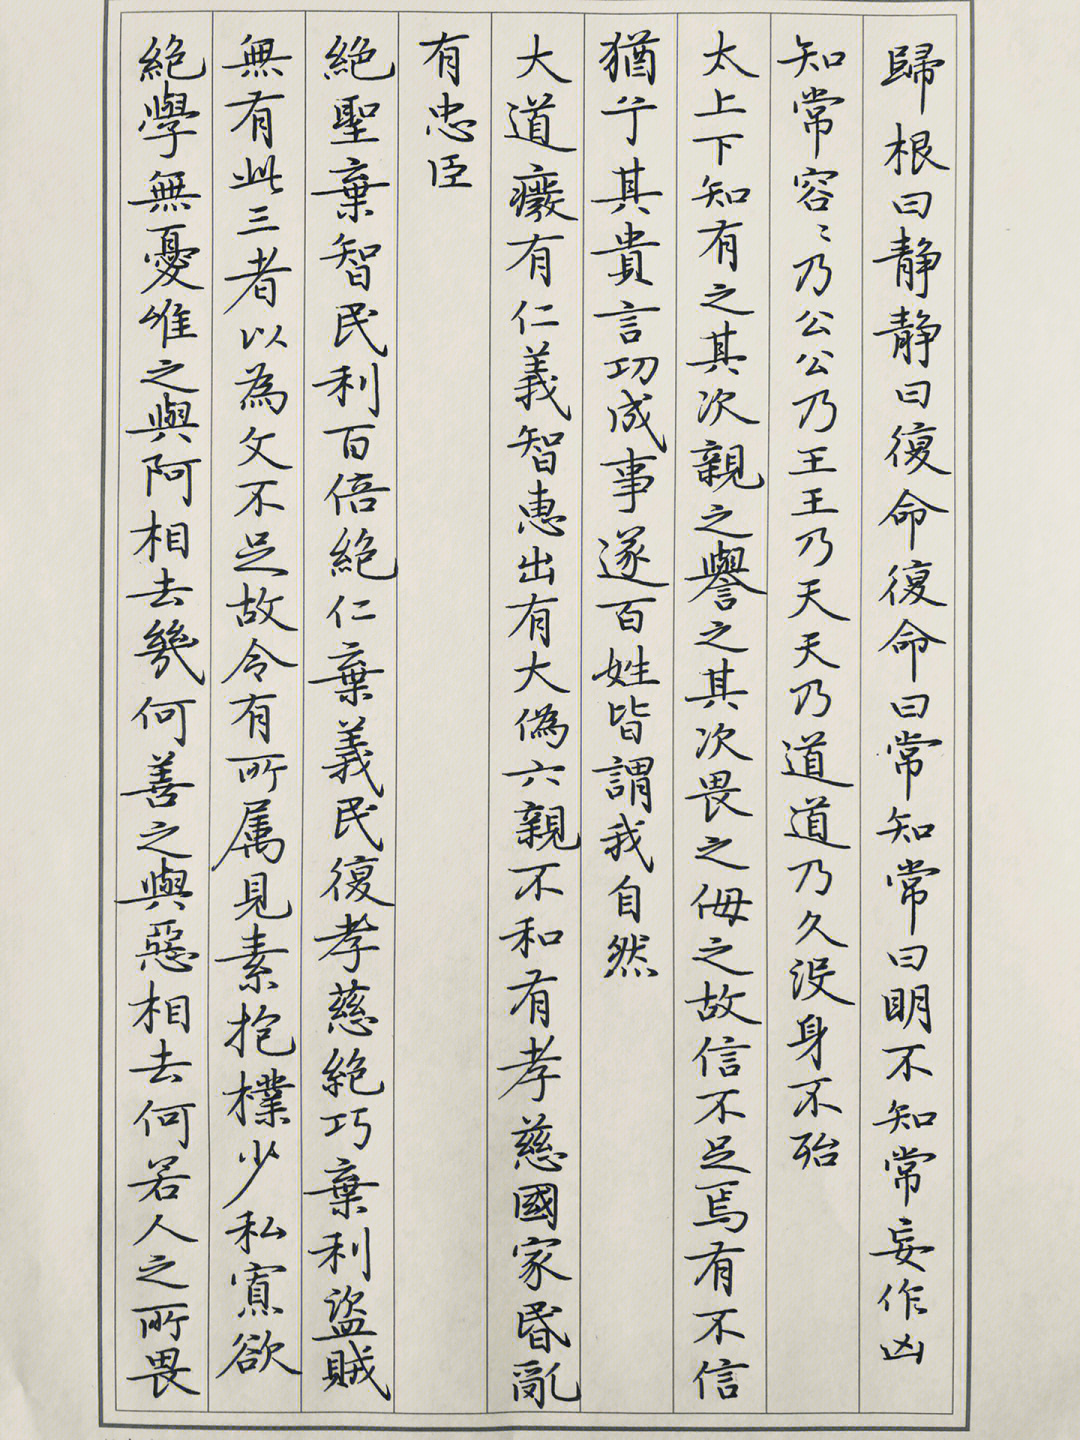 歸根曰靜靜曰復命復命曰常知常曰明不知常妄作凶
知常容〻乃公公乃王王乃天天乃道道乃久沒身不殆
太上下知有之其次親之譽之其次畏之侮之故信不足焉有不信
猶兮其貴言功成事遂百姓皆謂我自然
大道癈有仁義智惠出有大偽六親不和有孝慈國家昬亂
有忠臣
絕聖棄智民利百倍絕仁棄義民復孝慈絕巧棄利盜賊
無有此三者以為文不足故令有所属見素抱樸少私寡欲
絕學無憂唯之與阿相去幾何善之與惡相去何若人之所畏